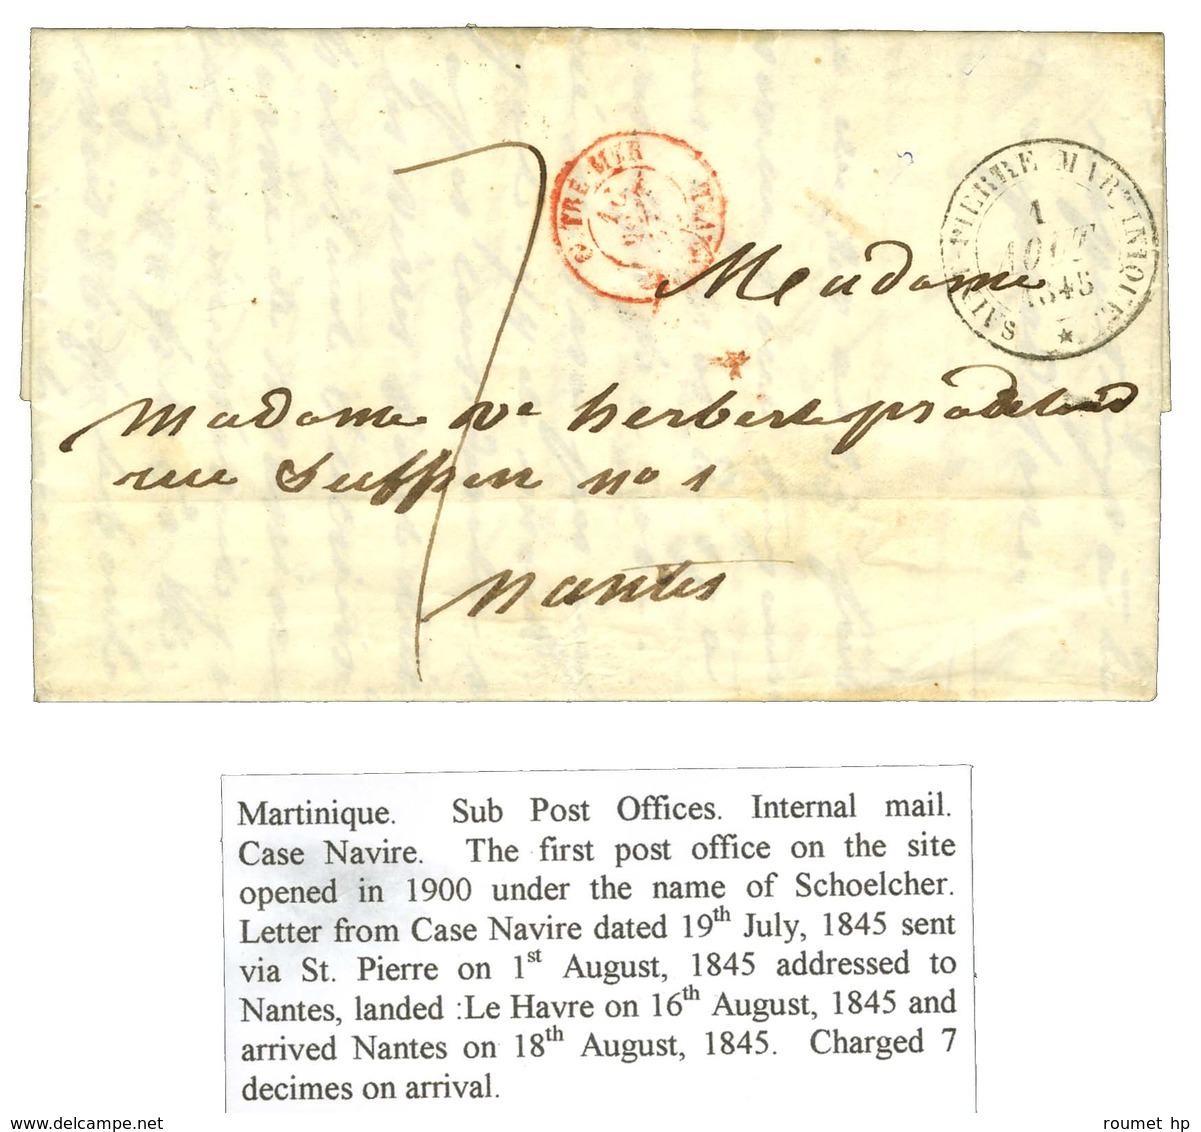 TRE-MER
SAINT-PIERRE MARTINIQUE
1
AOUT
1845
7
Madame
Madame Ve herbert
rue Suffren no 1
nantes
Martinique. Sub Post Offices. Internal mail.
Case Navire. The first post office on the site
opened in 1900 under the name of Schoelcher.
Letter from Case Navire dated 19th July, 1845 sent
via St. Pierre on 1st August, 1845 addressed to
Nantes, landed :Le Havre on 16th August, 1845 and
arrived Nantes on 18th August, 1845. Charged 7
decimes on arrival.
www.delcampe.net
roumet hp